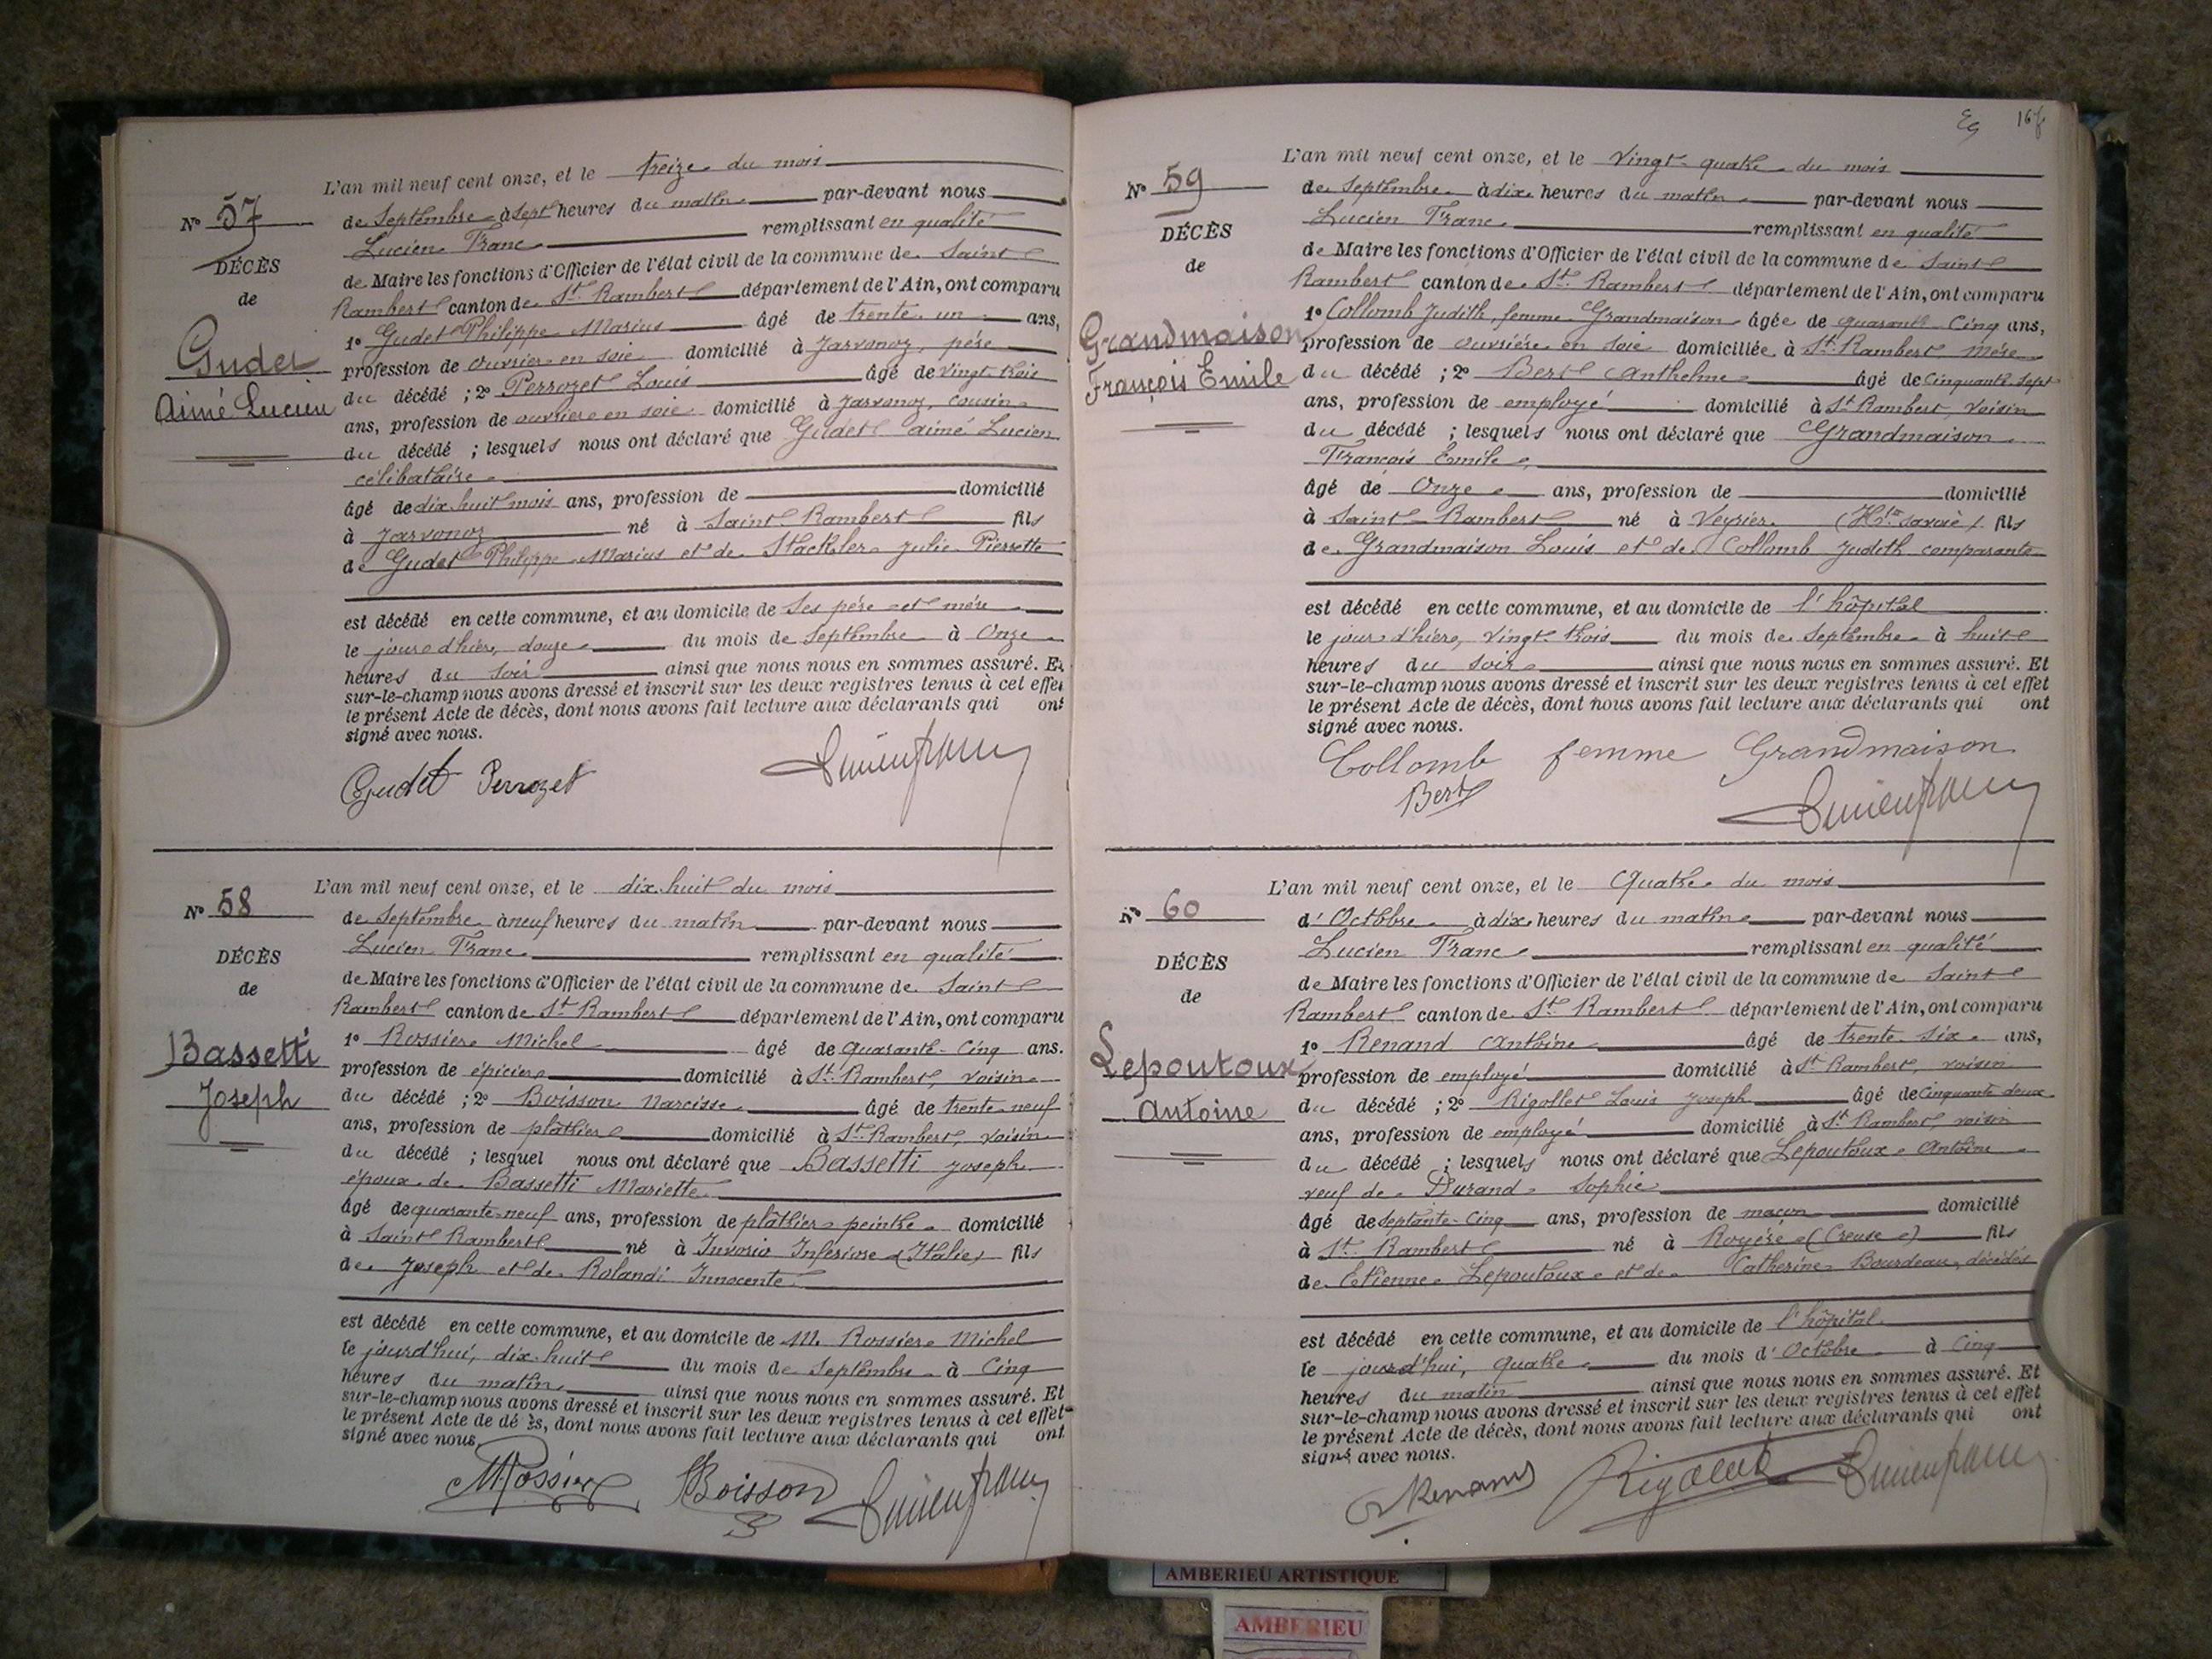 N° 57
DÉCÈS
de
Gudet
Aimé Lucien
L'an mil neuf cent onze, et le treize du mois
de Septembre à sept heures du matin par-devant nous
Lucien Franc remplissant en qualité
de Maire les fonctions d'Officier de l'état civil de la commune de Saint
Rambert canton de St Rambert département de l'Ain, ont comparu
1° Gudet Philippe Marius âgé de trente un ans,
profession de ouvrier en soie domicilié à Javornoz, père
du décédé ; 2° Perrozet Louis âgé de vingt trois
ans, profession de ouvrier en soie domicilié à Javornoz, cousin
du décédé ; lesquels nous ont déclaré que Gudet aimé Lucien
célibataire
âgé de dix huit mois ans, profession de domicilié
à Javornoz né à Saint Rambert fils
de Gudet Philippe Marius et de Stackler Julie Pierrette
est décédé en cette commune, et au domicile de Ses père et mère
le jour d'hier, douze du mois de Septembre à Onze
heures du soir ainsi que nous nous en sommes assuré. Et
sur-le-champ nous avons dressé et inscrit sur les deux registres tenus à cet effet
le présent Acte de décès, dont nous avons fait lecture aux déclarants qui ont
signé avec nous.
Gudet Perrozet Lucien Franc
N° 58
DÉCÈS
de
Bassetti
Joseph
L'an mil neuf cent onze, et le dix huit du mois
de Septembre à neuf heures du matin par-devant nous
Lucien Franc remplissant en qualité
de Maire les fonctions d'Officier de l'état civil de la commune de Saint
Rambert canton de St Rambert département de l'Ain, ont comparu
1° Rossier Michel âgé de quarante-cinq ans.
profession de épicier domicilié à St Rambert, voisin
du décédé ; 2° Boisson Narcisse âgé de trente neuf
ans, profession de plâtrier domicilié à St Rambert, voisin
du décédé ; lesquel nous ont déclaré que Bassetti Joseph
époux de Bassetti Mariette
âgé de quarante-neuf ans, profession de plâtrier peintre domicilié
à Saint Rambert né à Invorio Inferiore (Italie) fils
de Joseph et de Rolandi Innocente
est décédé en cette commune, et au domicile de M. Rossier Michel
le jourd'hui, dix-huit du mois de Septembre à Cinq
heures du matin ainsi que nous nous en sommes assuré. Et
sur-le-champ nous avons dressé et inscrit sur les deux registres tenus à cet effet
le présent Acte de dé ès, dont nous avons fait lecture aux déclarants qui ont
signé avec nous
MRossier Boisson Lucien Franc
167
N° 59
DÉCÈS
de
Grandmaison
François Emile
L'an mil neuf cent onze, et le Vingt-quatre du mois
de Septembre à dix heures du matin par-devant nous
Lucien Franc remplissant en qualité
de Maire les fonctions d'Officier de l'état civil de la commune de Saint
Rambert canton de St Rambert département de l'Ain, ont comparu
1° Collomb Judith, femme Grandmaison âgée de quarante-cinq ans,
profession de ouvrière en soie domiciliée à St Rambert mère
du décédé ; 2° Bert Anthelme âgé de cinquante-sept
ans, profession de employé domicilié à St Rambert, voisin
du décédé ; lesquels nous ont déclaré que Grandmaison
François Emile,
âgé de Onze ans, profession de domicilié
à Saint Rambert né à Veyrier (Hte Savoie). fils
de Grandmaison Louis et de Collomb Judith comparante
est décédé en cette commune, et au domicile de l'hôpital
le jour d'hier, vingt-trois du mois de Septembre à huit
heures du soir ainsi que nous nous en sommes assuré. Et
sur-le-champ nous avons dressé et inscrit sur les deux registres tenus à cet effet
le présent Acte de décès, dont nous avons fait lecture aux déclarants qui ont
signé avec nous.
Collomb femme Grandmaison
Bert Lucien Franc
N° 60
DÉCÈS
de
Lepoutoux
Antoine
L'an mil neuf cent onze, et le Quatre du mois
d'Octobre à dix heures du matin par-devant nous
Lucien Franc remplissant en qualité
de Maire les fonctions d'Officier de l'état civil de la commune de Saint
Rambert canton de St Rambert département de l'Ain, ont comparu
1° Renand Antoine âgé de trente six ans,
profession de employé domicilié à St Rambert, voisin
du décédé ; 2° Rigollet Louis Joseph âgé de Cinquante deux
ans, profession de employé domicilié à St Rambert, voisin
du décédé ; lesquels nous ont déclaré que Lepoutoux Antoine
veuf de Durand Sophie
âgé de Septante-Cinq ans, profession de maçon domicilié
à St Rambert né à Royère (Creuse) fils
de Etienne Lepoutoux et de Catherine Bourdeau, décédés
est décédé en cette commune, et au domicile de l'hôpital
le jourd'hui, quatre du mois d'Octobre à cinq
heures du matin ainsi que nous nous en sommes assuré. Et
sur-le-champ nous avons dressé et inscrit sur les deux registres tenus à cet effet
le présent Acte de décès, dont nous avons fait lecture aux déclarants qui ont
signé avec nous.
Renand Rigollet Lucien Franc
AMBERIEU ARTISTIQUE
AMBERIEU